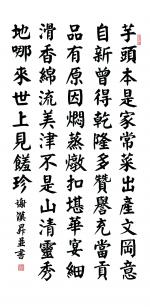 芋頭本是家常菜出產文岡意
自新曾得乾隆多贊譽充當貢
品有原因燜蒸燉扣堪華宴細
滑香綿流美津不是山清靈秀
地哪來世上見饈珍 謝漢昇並書